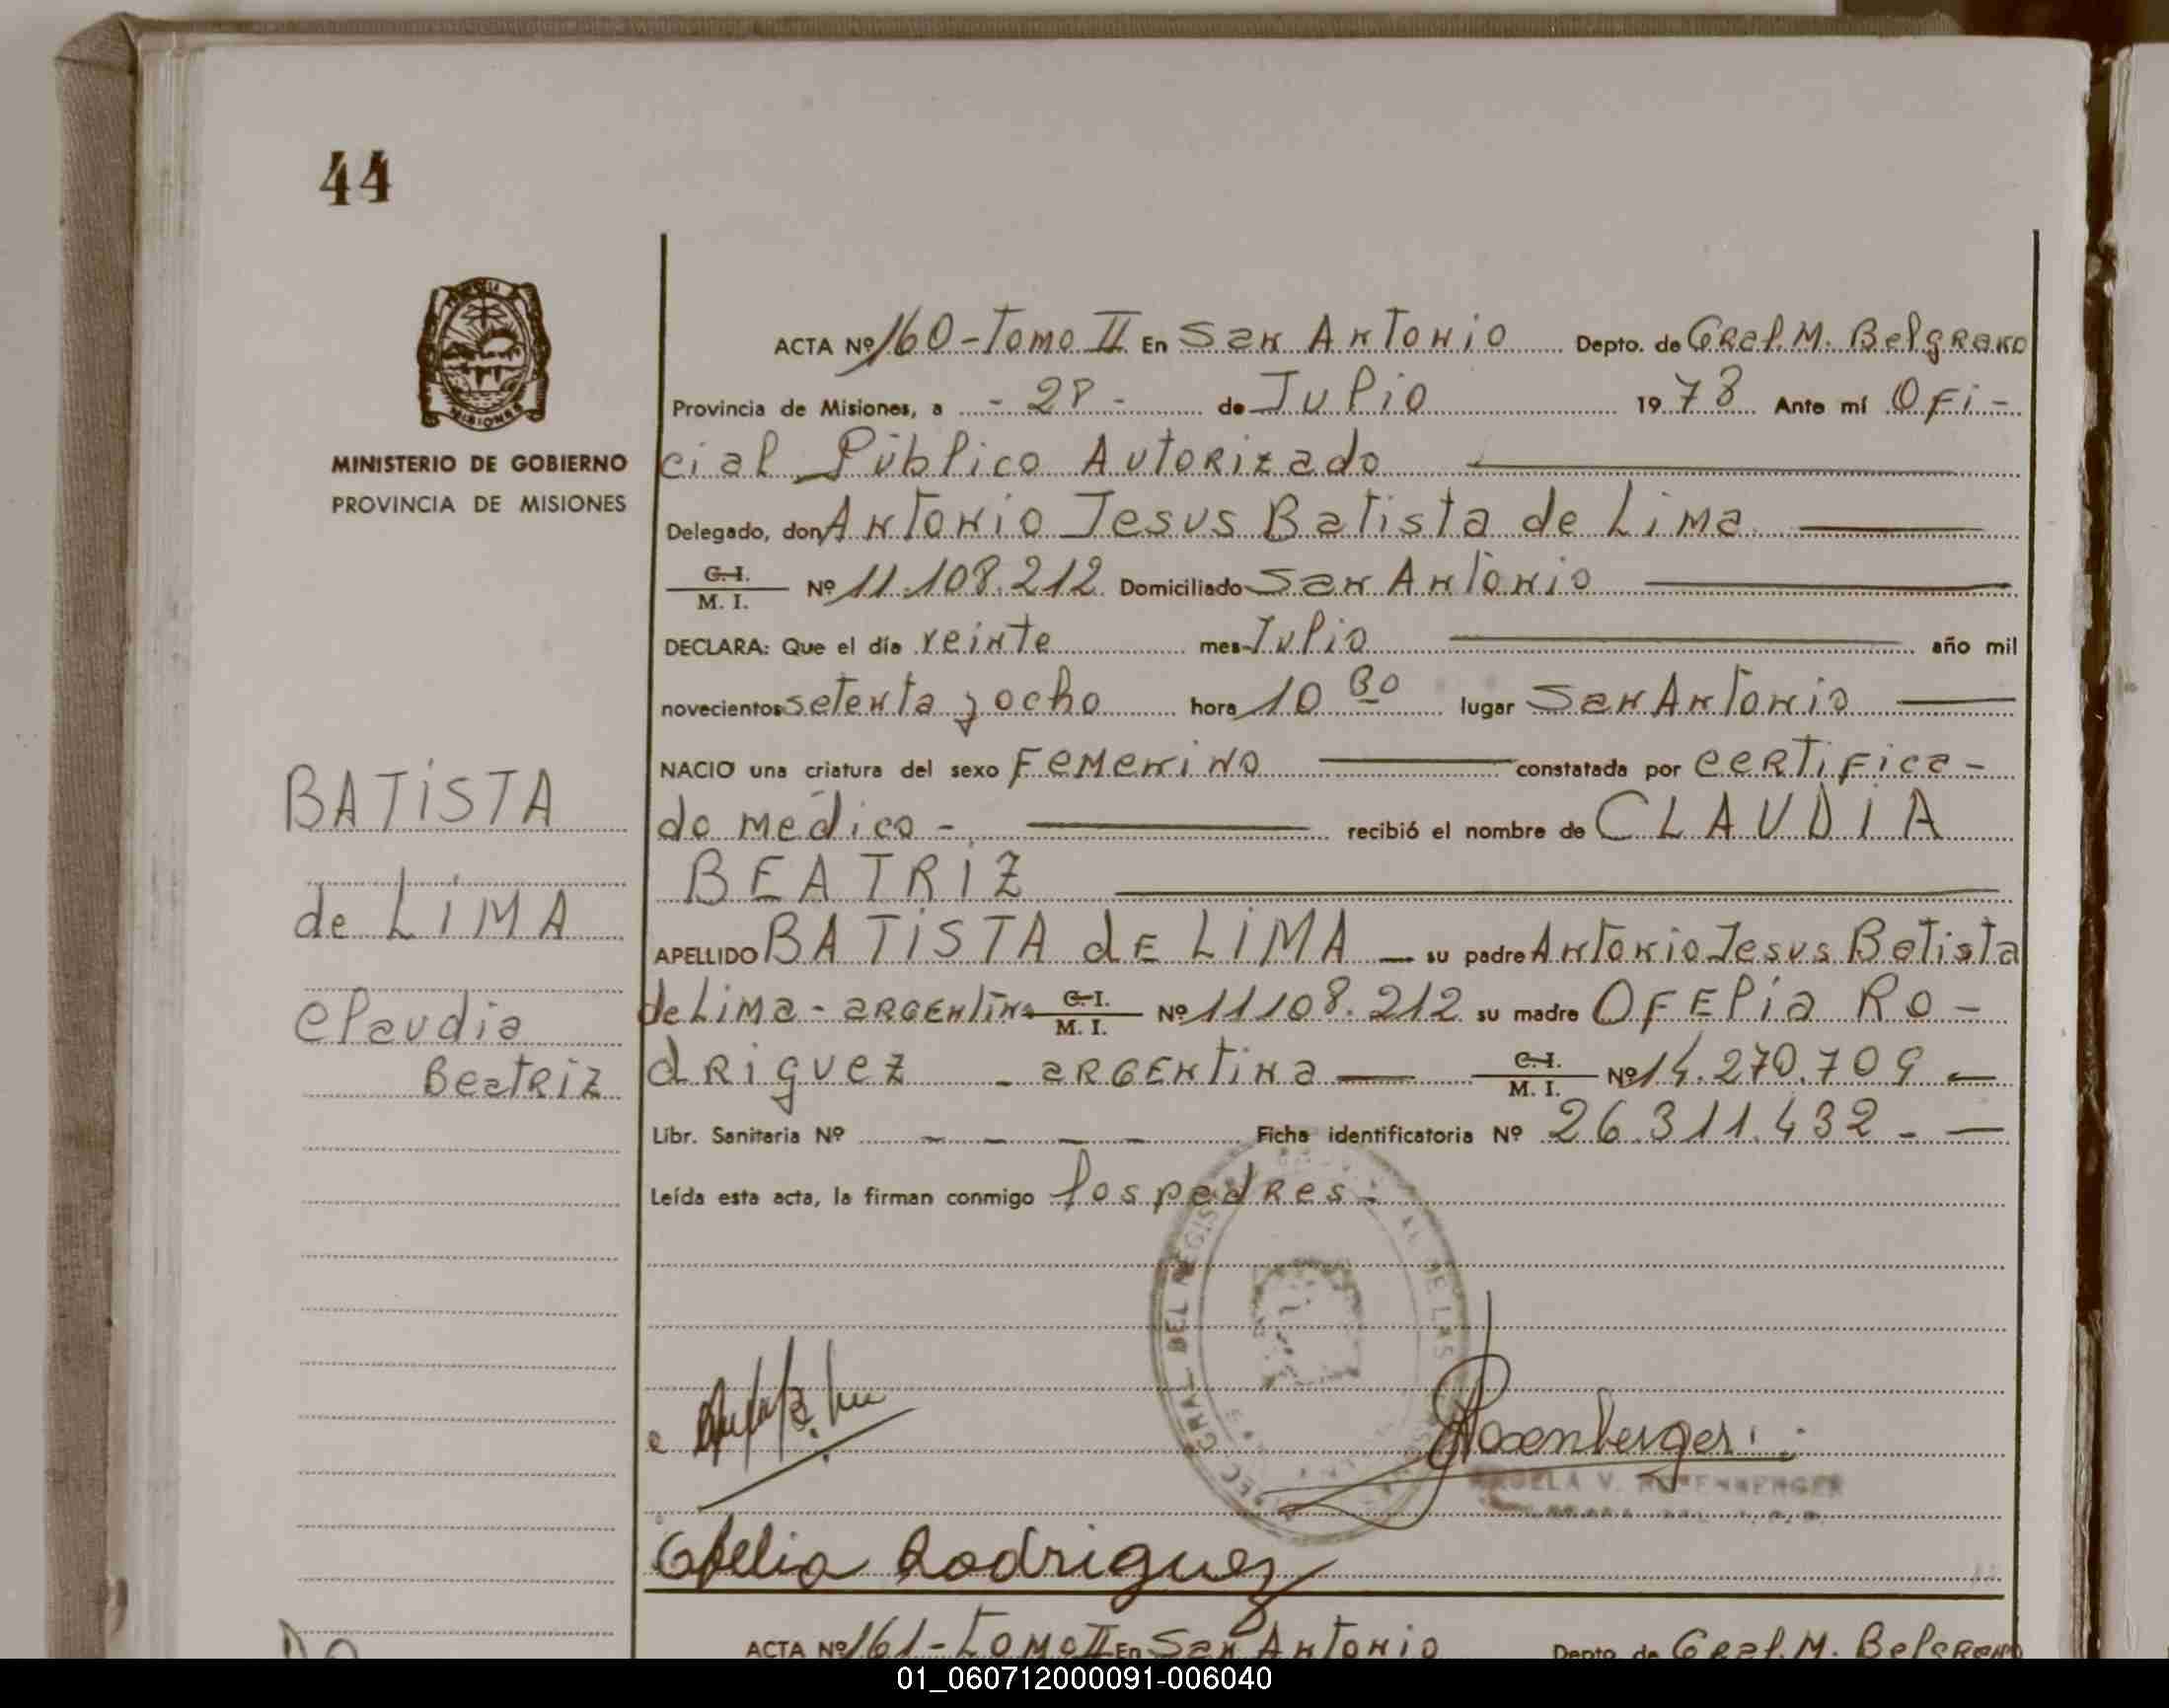 44
MINISTERIO DE GOBIERNO
PROVINCIA DE MISIONES
BATISTA
de LIMA
Claudia
Beatriz
ACTA Nº 160 - Tomo II En San Antonio Depto. de Gral. M. Belgrano
Provincia de Misiones, a - 28 - de Julio 1978 Ante mí Ofi-
cial Público Autorizado
Delegado, don Antonio Jesus Batista de Lima
C. I. / M. I. Nº 11.108.212 Domiciliado San Antonio
DECLARA: Que el día veinte mes Julio año mil
novecientos setenta y ocho hora 10 30 lugar San Antonio
NACIO una criatura del sexo Femenino constatada por certifica-
do médico - recibió el nombre de CLAUDIA
BEATRIZ
APELLIDO BATISTA dE LIMA su padre Antonio Jesus Batista
de Lima - argentino C. I. / M. I. Nº 11108.212 su madre Ofelia Ro-
driguez - argentina C. I. / M. I. Nº 14.270.709
Libr. Sanitaria Nº - - - - Ficha identificatoria Nº 26.311.432 -
Leída esta acta, la firman conmigo los padres -
Rosenberger
V. ROSENBERGER
Ofelia Rodriguez
ACTA Nº 161 - Tomo II En San Antonio Depto. de Gral. M. Belgrano
01_060712000091-006040